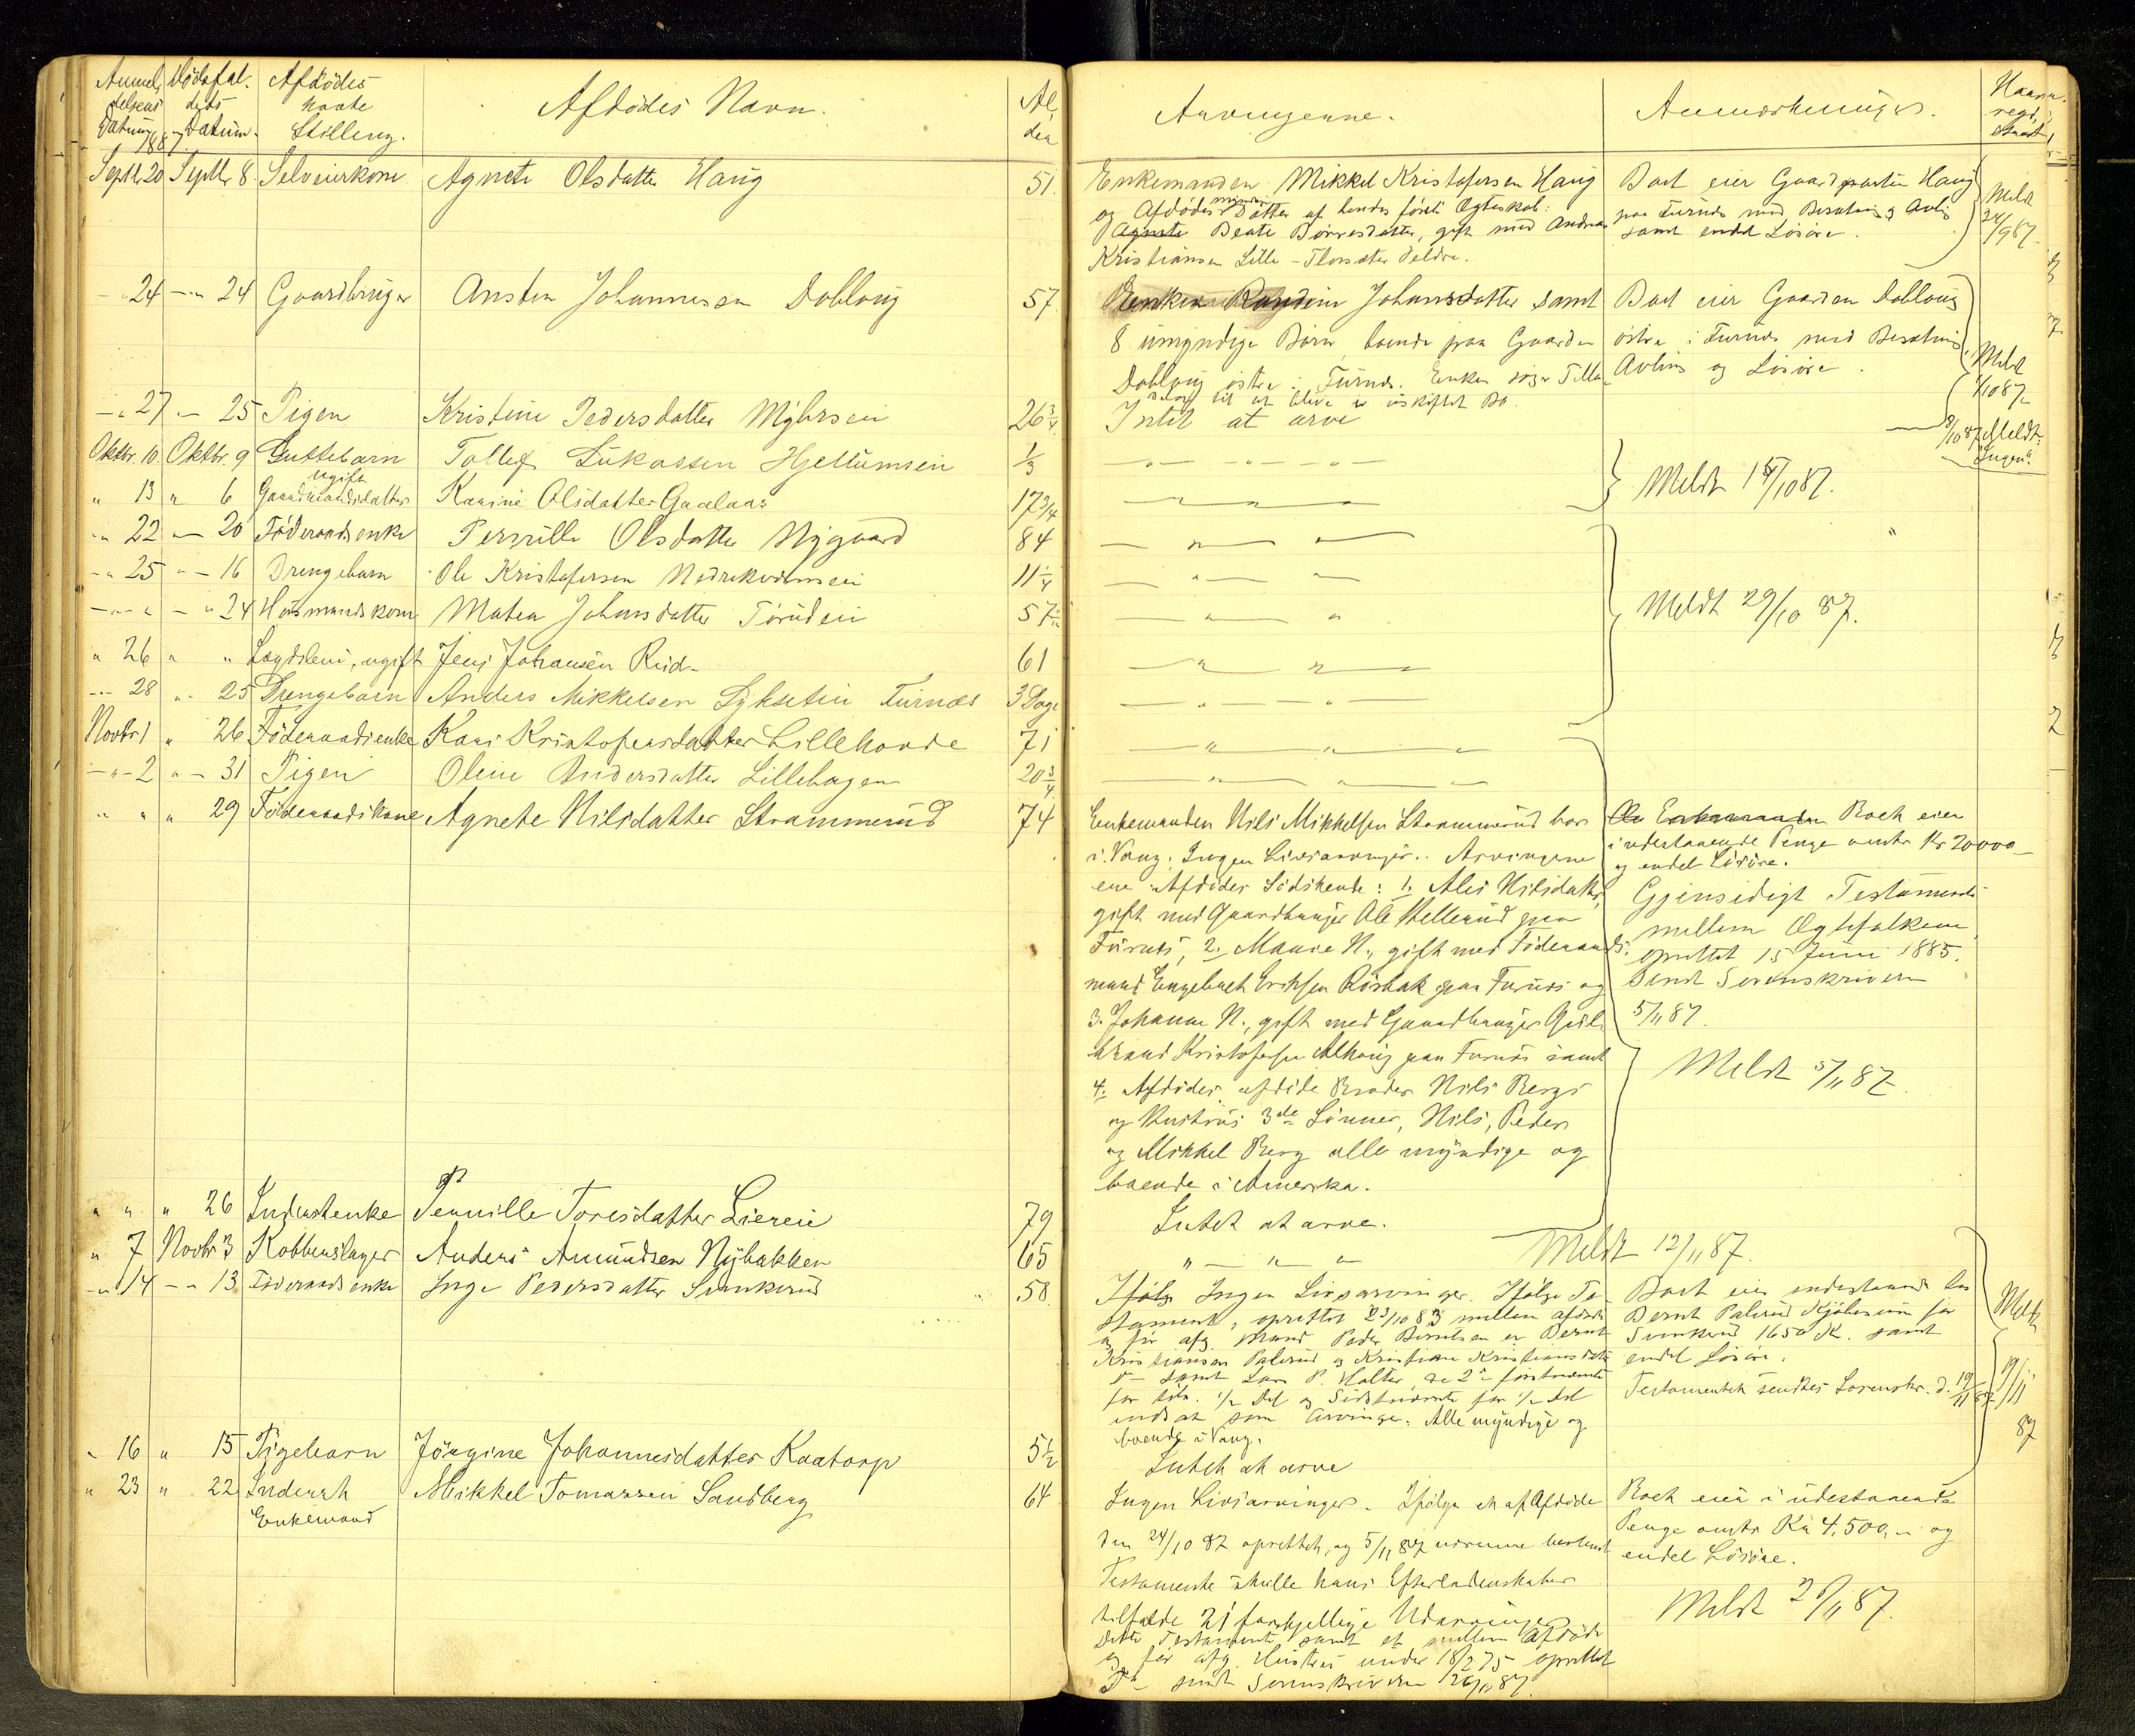 Anmel, delsens Datum 1887
Dødsfal. dets Datum
Afdødes navte Stilling.
Afdødes Navn.
Al, der
Arvingerne.
Anmærkninger.
Septbr 20 Septbr 8. Selveierkone Agnete Olsdatter Haug 51.
Enkemanden Mikkel Kristofersen Haug
og Afdødes myndige Datter af hendes første Ægteskab:
Agnete Beate Børresdatter, gift med Andreas
Kristiansen Lille-Florsæter Veldre.
Boet eier Gaardparten Haug
paa Furnes med Besætning og Avling
samt endel Løsøre.
Meldt
24/9 87.
" 24 " 24 Gaardbruger Austen Johannesen Doblong 57.
Enken Johansdatter samt
8 umyndige Børn, boende paa Gaarden
Doblong østre i Furnes. Enken søger Tilla,
delse til at blive i uskiftet Bo.
Boet eier Gaarden Doblong
østre i Furnes med Besætning,
Avling og Løsøre.
Meldt
1/10 87
" 27 " 25 Pigen Kristine Pedersdatter Myhrseie 26 3/4
Intet at arve
Oktbr. 10. Oktbr. 9 Guttebarn Tollef Lukassen Hjellumseie 1/3
" " "
8/10 87 Meldt.
Ingen.
" 13 " 6 ugift Gaardmandsdatter Karine Olsdatter Gaalaas 17 3/4
" " "
Meldt 15/10 87.
" 22 " 20 Føderaadsenke Pernille Olsdatter Nygaard 84
" "
" 25 " 16 Drengebarn Ole Kristofersen Nedrekvernseie 11 1/4
" "
" " " 24 Husmandskone Matea Johnsdatter Torudeie 57
" "
Meldt 29/10 87.
" 26 " " Lægdslem, ugift Jens Johansen Rud 61
" "
" 28 " 25 Drengebarn Anders Mikkelsen Lykseteie Furnes 3 Dage
" "
Novbr 1 " 26 Føderaadsenke Kari Kristofersdatter Lillehovde 71
" " "
" 2 " 31 Pigen Oline Andersdatter Lillehagen 20 3/4
" "
" " " 29 Føderaadskone Agnete Nilsdatter Strammerud 74
Enkemanden Nils Mikkelsen Strammerud bor
i Vang. Ingen Livsarvinger. Arvingerne
ere Afdødes Sødskende: 1. Alis Nilsdatter,
gift med Gaardbruger Ole Mellerud paa
Furnes, 2. Marie N., gift med Føderaads,
mand Engebret Eriksen Rosbak paa Furnes og
3. Johanne N., gift med Gaardbruger Gul,
brand Kristofersen Alhaug paa Furnes samt
4. Afdødes afdøde Broder Nils Bergs
og Hustrus 3de Sønner, Nils, Peder
og Mikkel Berg alle myndige og
boende i Amerika.
Boet eier
i udestaaende Penge omtr Kr 20000
og endel Løsøre.
Gjensidigt Testamente
mellem Ægtefolkene
oprettet 15 Juni 1885.
Sendt Sorenskriveren
5/11 87.
Meldt 5/11 87.
" " " 26 Inderstenke Pernille Toresdatter Liereie 79
Intet at arve.
" 7 Novbr 3 Kobberslager Anders Amundsen Nybakken 65
" " "
Meldt 12/11 87.
" 14 " 13 Føderaadsenke Inge Pedersdatter Svinkerud 58.
Ifølge Ingen Livsarvinger. Ifølge Te,
stament, oprettet 23/10 83 mellem afdøde
og før afg. Mand Peder Berntsen er Bernt
Kristiansen Palerud og Kristiane Kristiansdatter
samt Lars P. Halter, de 2de førstnævnte
for tils. 1/2 Del og Sidstnævnte for 1/2 Del
indsat som Arvinger. Alle myndige og
boende i Vang.
Boet eier udestaaende hos
Bernt Palerud Kjøbesum for
Svinkerud 1650 K. samt
endel Løsøre.
Testamentet sendtes Sorenskr. d. 19/11 87
Meldt
19/11
87
" 16 " 15 Pigebarn Jørgine Johannesdatter Kaatorp 5 1/2
Intet at arve
" 23 " 22 Inderst Enkemand Mikkel Tomassen Sandberg 64
Ingen Livsarvinger. Ifølge et af Afdøde
den 24/10 87 oprettet, og 5/11 87 nærmere bestemt
Testamente skulle hans Efterladenskaber
tilfalde 21 forskjellige Udarvinger
Dette Testamente samt et mellem Afdøde
og før afg. Hustru under 18/2 75 oprettet
Do sendt Sorenskriveren 26/11 87.
Boet eier i udestaaende
Penge omtr Kr 4,500,- og
endel Løsøre.
Meldt 26/11 87.